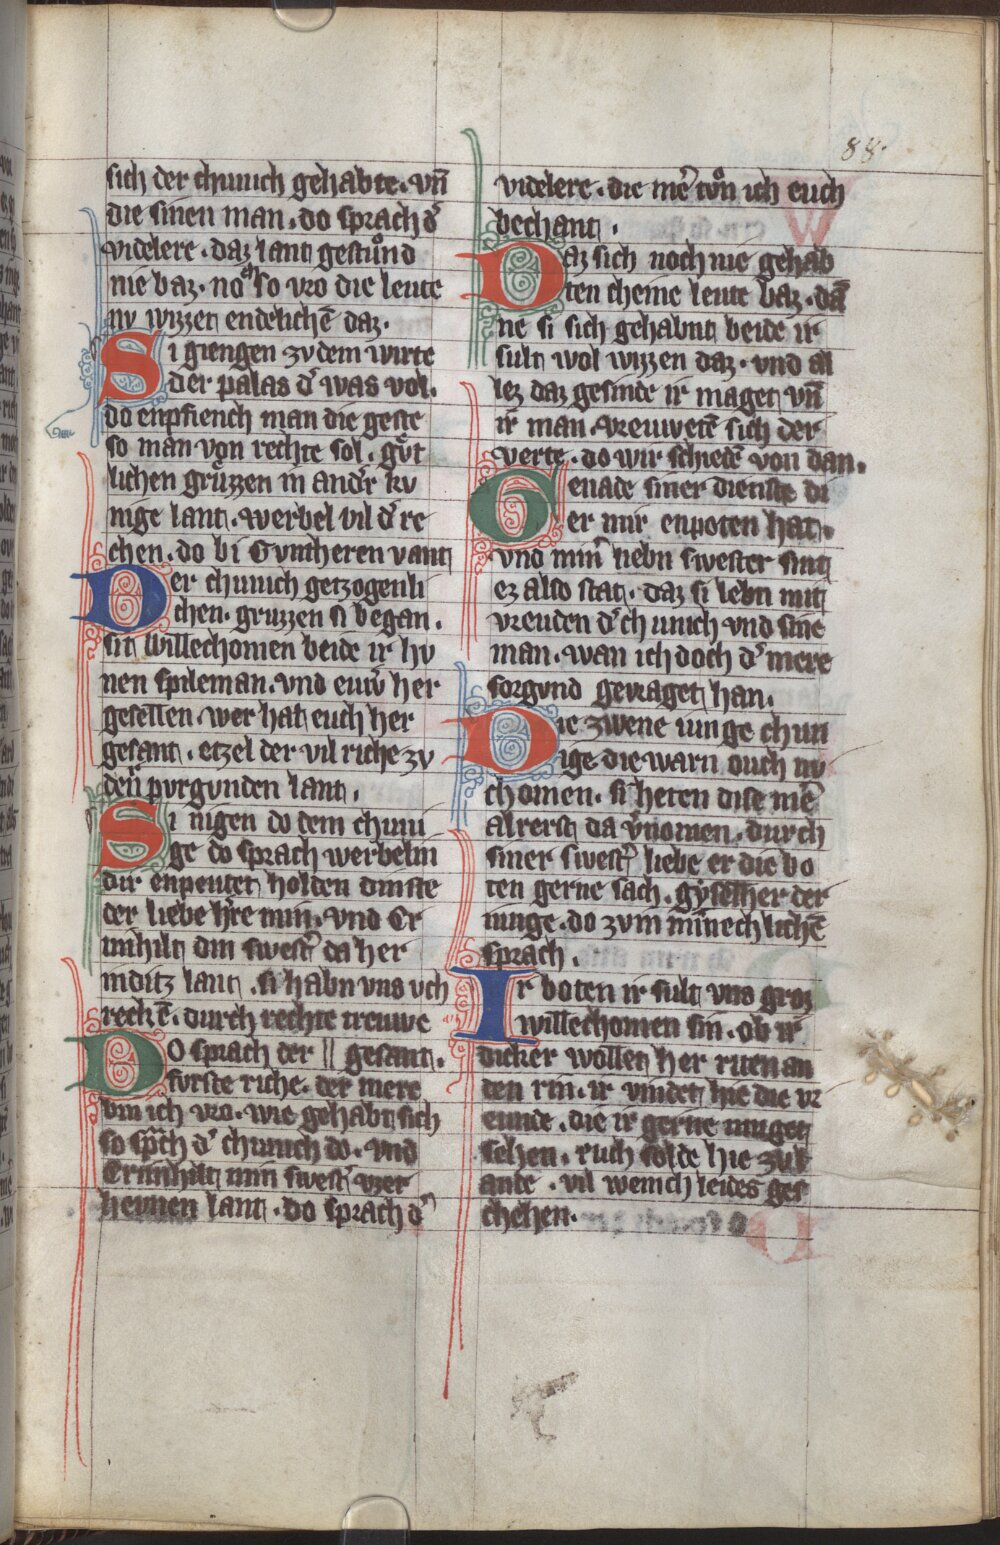 88.
sich der chunich gehabte. vn̄
die sinen man. do sprach d͛
videlere. daz lant gestuͦnd
nie baz. noch so vro die leute
nv wizzet endelichē daz.
Si giengen zv dem wirte
der palas d͛ was vol.
do enpfiench man die geste
so man von rechte sol. guͤt
lichen gruͤzzen in and͛r kv
nige lant. werbel vil d͛ re
chen. do bi Guntheren vant
Der chunich getzogenli
chen. gruzzen si began.
sit willechomen beide ir hv
nen spileman. vnd euw͛ her
gesellen. wer hat euch her
gesant. etzel der vil riche zv
den purgunden lant.
Si nigen do dem chuni
ge do sprach werbelin
dir enpeutet holden dinste
der liebe h͛re min. vnd Cr
imhilt din swest͛ da her
in ditz lant. si habn vns vch
reckē. durch rechte treuwe
Do sprach der || gesant.
furste riche. der mere
bin ich vro. wie gehabt sich
so sp͛ch d͛ chunich do. vnd
Crimhilt min swest͛ vzer
heunen lant. do sprach d͛
videlere. die me͛ tuͦn ich euch
bechant.
Daz sich noch nie gehab
ten cheine leute baz. dā
ne si sich gehabnt beide ir
sult wol wizzen daz. vnd al
lez daz gesinde ir maget vn̄
ir man. vreuwetē sich der
verte. do wir schiedē von dan.
Genade siner dienste di
er mir enpoten hat.
vnd min͛ liebn swester sint
ez also stat. daz si lebn mit
vreuden d͛ chunich vnd sine
man. wan ich doch d͛ mere
sorgund gevraget han.
Die zwene iunge chun
ige die warn ouch nv
chomen. si heten dise me͛
alrerst da v͛nomen. durch
siner swest͛ liebe er die bo
ten gerne sach. gyselher der
iunge. do zvm minnechlichē
sprach.
Ir boten ir sult vns groz
willechomen sin. ob ir
dicker wollet her riten an
den rin. ir vindet hie die vr
eunde. die ir gerne muget
sehen. euch solde hie zv l
ande. vil wenich leides ges
chehen.